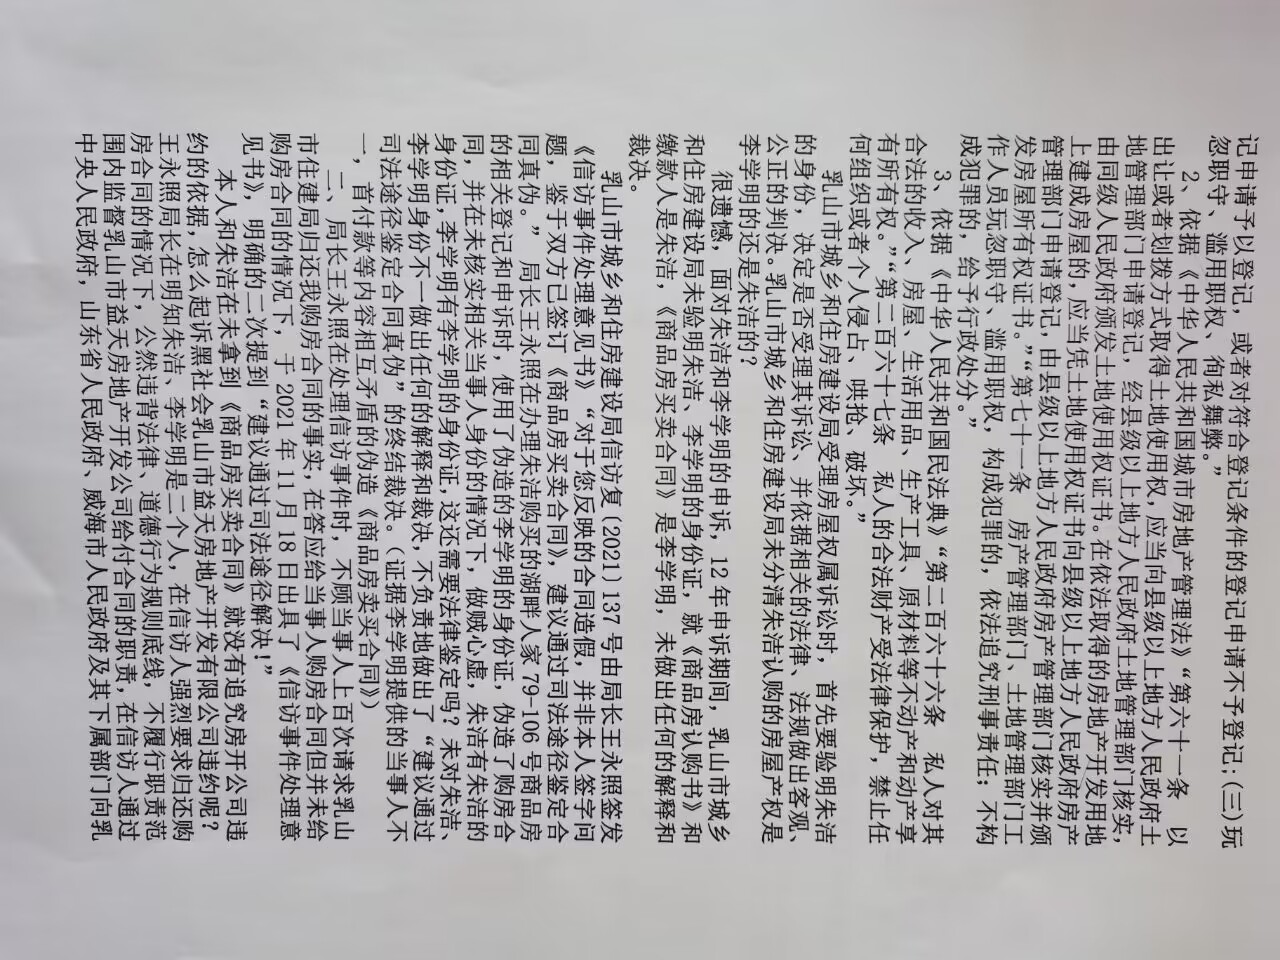 记申请予以登记，或者对符合登记条件的登记申请不予登记；(三)玩
忽职守、滥用职权、徇私舞弊。”
2、依据《中华人民共和国城市房地产管理法》“第六十一条 以
出让或者划拨方式取得土地使用权，应当向县级以上地方人民政府土
地管理部门申请登记，经县级以上地方人民政府土地管理部门核实，
由同级人民政府颁发土地使用权证书。在依法取得的房地产开发用地
上建成房屋的，应当凭土地使用权证书向县级以上地方人民政府房产
管理部门申请登记，由县级以上地方人民政府房产管理部门核实并颁
发房屋所有权证书。”“第七十一条 房产管理部门、土地管理部门工
作人员玩忽职守、滥用职权，构成犯罪的，依法追究刑事责任；不构
成犯罪的，给予行政处分。”
3、依据《中华人民共和国民法典》“第二百六十六条 私人对其
合法的收入、房屋、生活用品、生产工具、原材料等不动产和动产享
有所有权。”“第二百六十七条 私人的合法财产受法律保护，禁止任
何组织或者个人侵占、哄抢、破坏。”
乳山市城乡和住房建设局受理房屋权属诉讼时，首先要验明朱洁
的身份，决定是否受理其诉讼、并依据相关的法律、法规做出客观、
公正的判决。乳山市城乡和住房建设局未分清朱洁认购的房屋产权是
李学明的还是朱洁的？
很遗憾，面对朱洁和李学明的申诉，12年申诉期间，乳山市城乡
和住房建设局未验明朱洁、李学明的身份证，就《商品房认购书》和
缴款人是朱洁，《商品房买卖合同》是李学明，未做出任何的解释和
裁决。
乳山市城乡和住房建设局信访复(2021)137号由局长王永照签发
《信访事件处理意见书》“对于您反映的合同造假，并非本人签字问
题，鉴于双方已签订《商品房买卖合同》，建议通过司法途径鉴定合
同真伪。”局长王永照在办理朱洁购买的湖畔人家79-106号商品房
的相关登记和申诉时，使用了伪造的李学明的身份证，伪造了购房合
同，并在未核实相关当事人身份的情况下，做贼心虚，朱洁有朱洁的
身份证，李学明有李学明的身份证，这还需要法律鉴定吗？未对朱洁、
李学明身份不一做出任何的解释和裁决，不负责地做出了“建议通过
司法途径鉴定合同真伪”的终结裁决。（证据李学明提供的当事人不
一，首付款等内容相互矛盾的伪造《商品房卖买合同》）
二、局长王永照在处理信访事件时，不顾当事人上百次请求乳山
市住建局归还我购房合同的事实，在答应给当事人购房合同但并未给
购房合同的情况下，于2021年11月18日出具了《信访事件处理意
见书》，明确的二次提到“建议通过司法途径解决！”
本人和朱洁在未拿到《商品房买卖合同》就没有追究房开公司违
约的依据，怎么起诉黑社会乳山市益天房地产开发有限公司违约呢？
王永照局长在明知朱洁、李学明是二个人，在信访人强烈要求归还购
房合同的情况下，公然违背法律、道德行为规则底线，不履行职责范
围内监督乳山市益天房地产开发公司给付合同的职责，在信访人通过
中央人民政府，山东省人民政府、威海市人民政府及其下属部门向乳